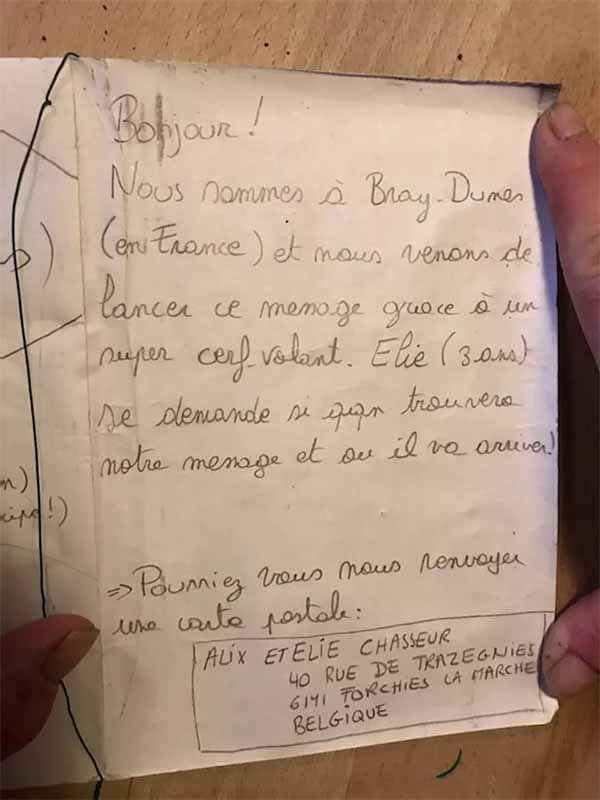 Bonjour !
Nous sommes à Bray-Dunes
(en France) et nous venons de
lancer ce message grace à un
super cerf-volant. Elie (3 ans)
se demande si qqn trouvera
notre message et ou il va arriver !
)
n)
cipe !)
=> Pourriez vous nous renvoyer
une carte postale :
ALIX ET ELIE CHASSEUR
40 RUE DE TRAZEGNIES
6141 FORCHIES LA MARCHE
BELGIQUE